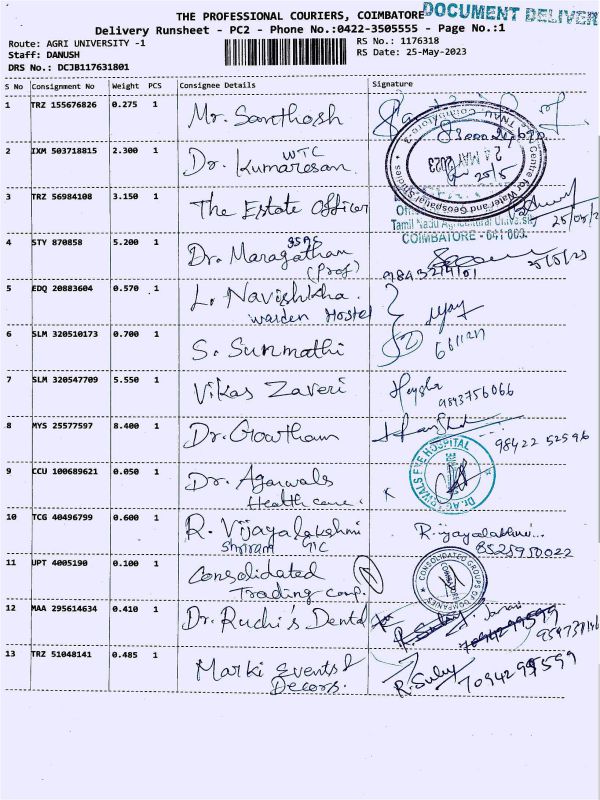 THE PROFESSIONAL COURIERS, COIMBATORE
DOCUMENT DELIVER
Delivery Runsheet - PC2 - Phone No.:0422-3505555 - Page No.:1
Route: AGRI UNIVERSITY -1
RS No.: 1176318
Staff: DANUSH
RS Date: 25-May-2023
DRS No.: DCJB117631801
S No Consignment No Weight PCS Consignee Details Signature
1 TRZ 155676826 0.275 1 Mr. Santhosh
Centre for Water and Geospatial Studies
TNAU Coimbatore
24 MAY 2023
25/5
2 IXM 503718815 2.300 1 Dr. Kumaresan
WTC
3 TRZ 56984108 3.150 1 The Estate Officer
Tamil Nadu Agricultural University
COIMBATORE - 641 003.
4 STY 870858 5.200 1 Dr. Maragatham
(Prof)
5 EDQ 20883604 0.570 1 L. Navishkha.
Warden Hostel
6 SLM 320510173 0.700 1 S. Sunmathi
7 SLM 320547709 5.550 1 Vikas Zaveri
9843756066
8 MYS 25577597 8.400 1 Dr. Gowtham
98422 52596
9 CCU 100689621 0.050 1 Dr. Agarwals
Health care.
DR. AGARWALS EYE HOSPITAL
10 TCG 40496799 0.600 1 R. Vijayalakshmi
Shriram GIC
8525950022
11 UPT 4005190 0.100 1 Consolidated
Trading comp.
CONSOLIDATED GROUPS OF COMPANIES
12 MAA 295614634 0.410 1 Dr. Ruchi's Dental
7094299599
13 TRZ 51048141 0.485 1 Marki Events &
Decors.
R. Suby 7094299599